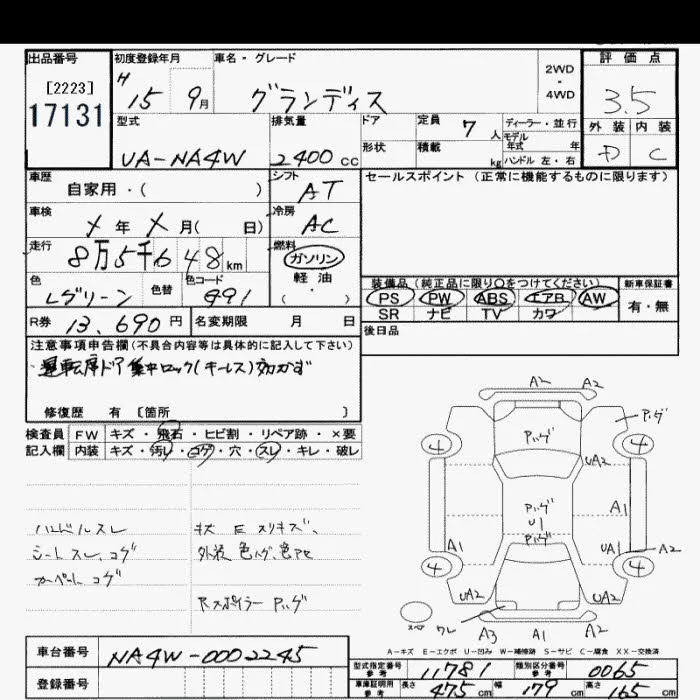 出品番号 初度登録年月 車名・グレード 評価点
[2223]
17131
H 15 9月 グランディス 2WD・4WD 3.5
外装 内装
D C
型式 排気量 ドア 定員 7人 ディーラー・並行
モデル年式 年
形状 積載 kg ハンドル 左・右
UA-NA4W 2400 cc
車歴 自家用・( ) シフト AT セールスポイント(正常に機能するものに限ります)
車検 メ年 メ月( 日) 冷房 AC
走行 8万5千648km 燃料 ガソリン
軽油
・( )
色 Lグリーン 色替 色コード G91
装備品(純正品に限り○をつけてください) 新車保証書
PS PW ABS エアB AW 有・無
SR ナビ TV カワ
R券 13,690円 名変期限 月 日 後日品
注意事項申告欄(不具合内容等は具体的に記入して下さい)
運転席ドア集中ロック(キーレス)効かず
修復歴 有 〔箇所 〕
検査員 FW キズ・飛石・ヒビ割・リペア跡・×要
記入欄 内装 キズ・汚レ・コゲ・穴・スレ・キレ・破レ
A2 A2
Pハゲ Pハゲ
4 4
UA2
Pハゲ
U1
Pハゲ
A1
A1 UA1 A2
4 4
UA2 UA2
ワレ A3 A1 A2
ハンドルスレ
シートスレ コゲ
カーペットコゲ
外装 色ハゲ、色アセ
Rスポイラー Pハゲ
A=キズ E=エクボ U=凹み W=補修跡 S=サビ C=腐食 XX=交換済
車台番号 NA4W-0002245
登録番号
型式指定番号 参考 11781 類別区分番号 参考 0065
車庫証明用 参考 長さ 475cm 幅 179cm 高さ 165cm